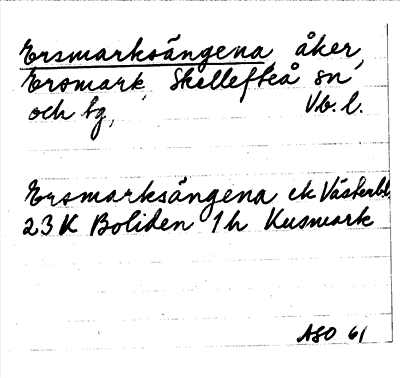 Ersmarksängena åker,
Ersmark, Skellefteå sn
och tg, Vb. l.
Ersmarksängena ek Västerb.
23K Boliden 1h Kusmark
ASO 61